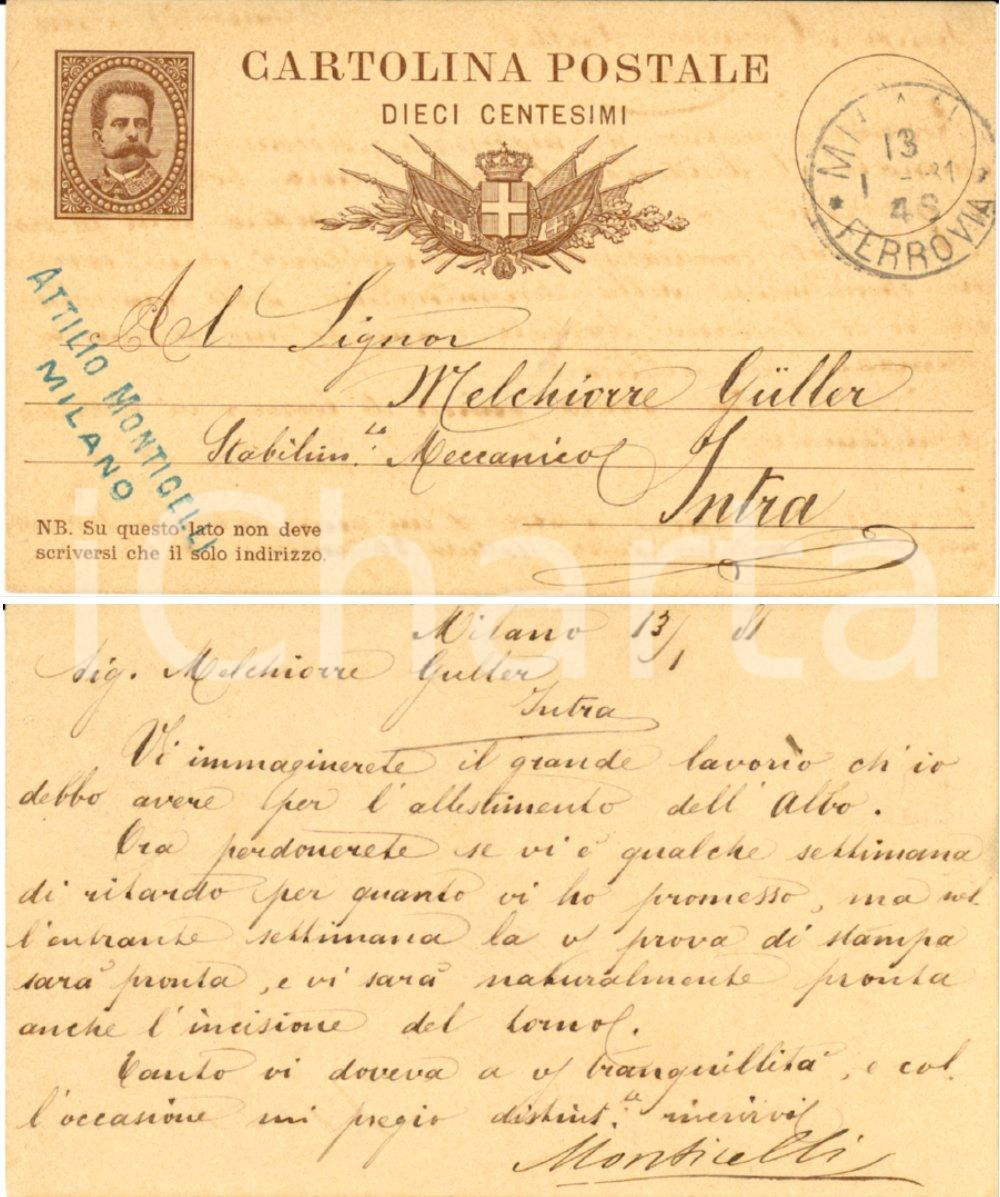 CARTOLINA POSTALE
DIECI CENTESIMI
MILANO
13
1 - 81
4S
* FERROVIA *
Al Signor
Melchiorre Güller
Stabilim.to Meccanico
Intra
ATTILIO MONTICELLI
MILANO
NB. Su questo lato non deve
scriversi che il solo indirizzo.
iCharta
Milano 13/1 81
Sig. Melchiorre Guller
Intra
Vi immaginerete il grande lavorìo ch'io
debbo avere per l'allestimento dell'Albo.
Ora perdonerete se vi è qualche settimana
di ritardo per quanto vi ho promesso, ma nel-
l'entrante settimana la v/ prova di stampa
sarà pronta, e vi sarà naturalmente pronta
anche l'incisione del torno.
Tanto vi doveva a v/ tranquillità, e col-
l'occasione mi pregio distint.te riverirvi
Monticelli